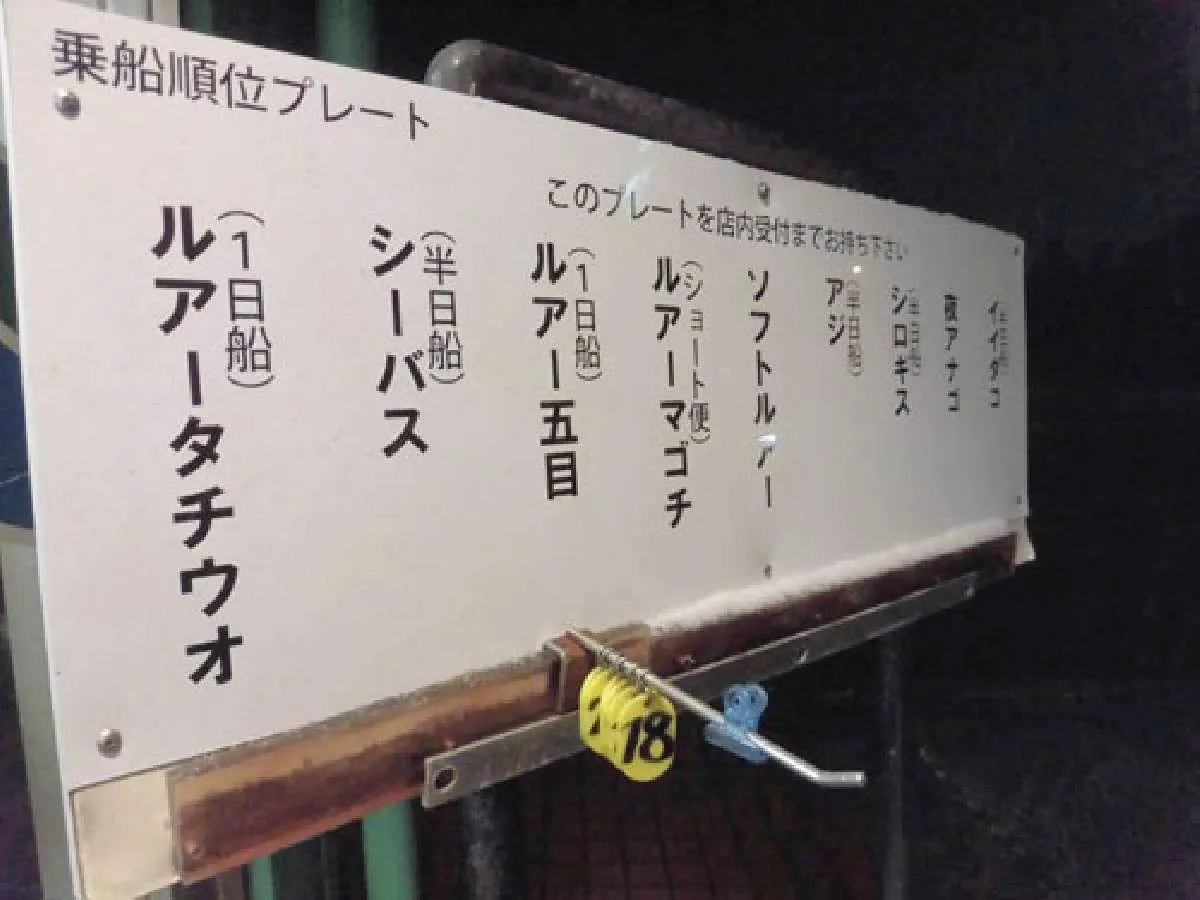 乗船順位プレート
このプレートを店内受付までお持ち下さい
(1日船)
ルアータチウオ
(半日船)
シーバス
(1日船)
ルアー五目
(ショート便)
ルアーマゴチ
ソフトルアー
(半日船)
アジ
(半日船)
シロギス
夜アナゴ
イイダコ
18